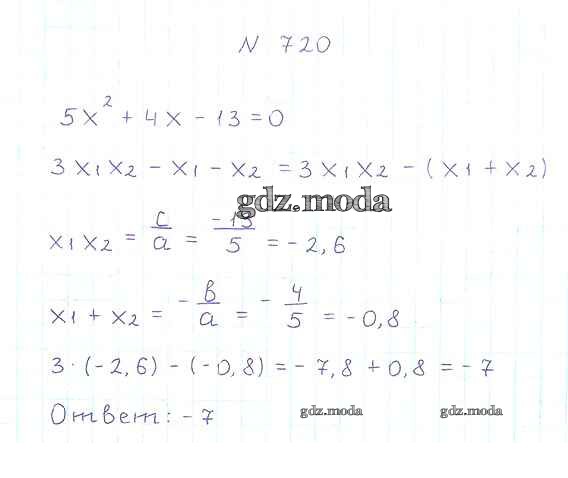 N 720
5x² + 4x - 13 = 0
3x₁x₂ - x₁ - x₂ = 3x₁x₂ - (x₁ + x₂)
gdz.moda
x₁x₂ = c/a = -13/5 = -2,6
x₁ + x₂ = -в/a = -4/5 = -0,8
3·(-2,6) - (-0,8) = -7,8 + 0,8 = -7
Ответ: -7
gdz.moda gdz.moda